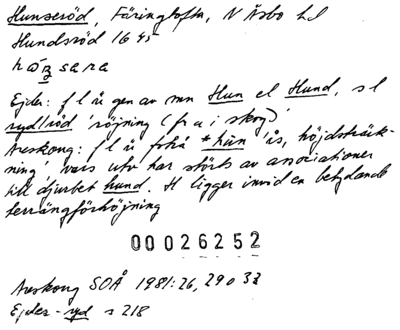 Hunseröd, Färingtofta, N Åsbo hd
Hundsröd 1645
Ejder: f l ä gen av mn Hun el Hund, s l
ryd/röd 'röjning (fr a i skog)'
Areskoug: f l ä *hūn 'ås, höjdsträck-
ning', vars utv har störts av associationer
till djurbet hund. H ligger invid en betydande
terrängförhöjning
00026252
Areskoug SOÅ 1981:26, 29 o 33
Ejder -ryd s 218